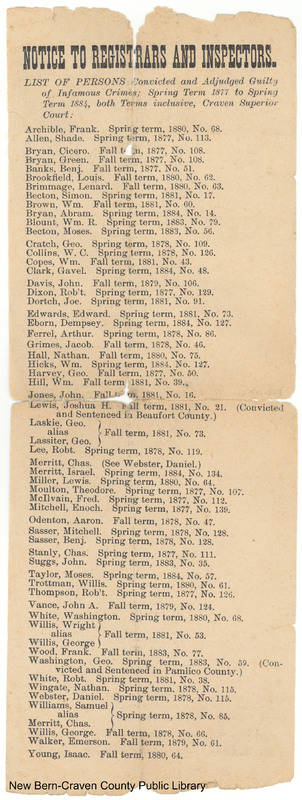 NOTICE TO REGISTRARS AND INSPECTORS.
LIST OF PERSONS Convicted and Adjudged Guilty
of Infamous Crimes; Spring Term 1877 to Spring
Term 1884, both Terms inclusive, Craven Superior
Court:
Archible, Frank. Spring term, 1880, No. 68.
Allen, Shade. Spring term, 1877, No. 113.
Bryan, Cicero. Fall term, 1877, No. 108.
Bryan, Green. Fall term, 1877, No. 108.
Banks, Benj. Fall term, 1877, No. 51.
Brookfield, Louis. Fall term, 1880, No. 62.
Brimmage, Lenard. Fall term, 1880, No. 63.
Becton, Simon. Spring term, 1881, No. 17.
Brown, Wm. Fall term, 1881, No. 60.
Bryan, Abram. Spring term, 1884, No. 14.
Blount, Wm. R. Spring term, 1883, No. 79.
Becton, Moses. Spring term, 1883, No. 56.
Cratch, Geo. Spring term, 1878, No. 109.
Collins, W. C. Spring term, 1878, No. 126.
Copes, Wm. Fall term, 1881, No. 43.
Clark, Gavel. Spring term, 1884, No. 48.
Davis, John. Fall term, 1879, No. 106.
Dixon, Rob't. Spring term, 1877, No. 129.
Dortch, Joe. Spring term, 1881, No. 91.
Edwards, Edward. Spring term, 1881, No. 73.
Eborn, Dempsey. Spring term, 1884, No. 127.
Ferrel, Arthur. Spring term, 1878, No. 86.
Grimes, Jacob. Fall term, 1878, No. 46.
Hall, Nathan. Fall term, 1880, No. 75.
Hicks, Wm. Spring term, 1884, No. 127.
Harvey, Geo. Fall term, 1877, No. 50.
Hill, Wm. Fall term, 1881, No. 39.
Jones, John. Fall term, 1881, No. 16.
Lewis, Joshua H. Fall term, 1881, No. 21. (Convicted
and Sentenced in Beaufort County.)
Laskie, Geo.
alias } Fall term, 1881, No. 73.
Lassiter, Geo.
Lee, Robt. Spring term, 1878, No. 119.
Merritt, Chas. (See Webster, Daniel.)
Merritt, Israel. Spring term, 1884, No. 134.
Miller, Lewis. Spring term, 1880, No. 64.
Moulton, Theodore. Spring term, 1877, No. 107.
McIlvain, Fred. Spring term, 1877, No. 112.
Mitchell, Enoch. Spring term, 1877, No. 139.
Odenton, Aaron. Fall term, 1878, No. 47.
Sasser, Mitchell. Spring term, 1878, No. 128.
Sasser, Benj. Spring term, 1878, No. 128.
Stanly, Chas. Spring term, 1877, No. 111.
Suggs, John. Spring term, 1883, No. 35.
Taylor, Moses. Spring term, 1884, No. 57.
Trottman, Willis. Spring term, 1880, No. 61.
Thompson, Rob't. Spring term, 1877, No. 126.
Vance, John A. Fall term, 1879, No. 124.
White, Washington. Spring term, 1880, No. 68.
Willis, Wright
alias } Fall term, 1881, No. 53.
Willis, George
Wood, Frank. Fall term, 1883, No. 77.
Washington, Geo. Spring term, 1883, No. 59. (Con-
victed and Sentenced in Pamlico County.)
White, Robt. Spring term, 1881, No. 38.
Wingate, Nathan. Spring term, 1878, No. 115.
Webster, Daniel. Spring term, 1878, No. 115.
Williams, Samuel
alias } Spring term, 1878, No. 85.
Merritt, Chas.
Willis, George. Fall term, 1878, No. 66.
Walker, Emerson. Fall term, 1879, No. 61.
Young, Isaac. Fall term, 1880, 64.
New Bern-Craven County Public Library